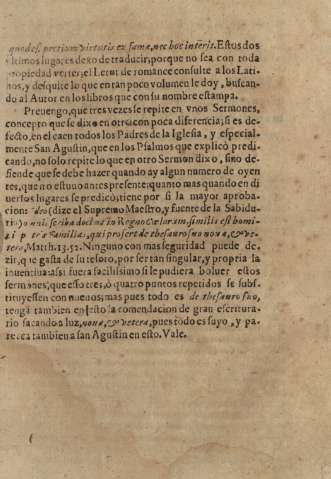 quedes. pretium virtutis ex fama, nec hoc interis. Estos dos
ltimos lugares dexo de traducir, porque no sea con toda
propiedad verterse: Letor de romance consulte a los Lati-
nos, y desquite lo que en tan poco volumen le doy, buscan-
do al Autor en los libros que con su nombre estampa.
Preuengo, que tres vezes se repite en vnos Sermones,
concepto que se dixo en otro con poca diferencia; si es de-
fecto, en el caen todos los Padres de la Iglesia, y especial-
mente San Agustin, que en los Psalmos que explicó predi-
cando, no solo repite lo que en otro Sermon dixo, sino de-
fiende que se debe hazer quando ay algun numero de oyen
tes, que no estuuo antes presente: quanto mas quando en di
uersos lugares se predicó; tiene por si la mayor aproba-
cion: Ideo (dize el Supremo Maestro, y fuente de la Sabidu-
ria) omnis scriba doctus in Regno Cælorum, similis est homi-
ni patri familias, qui profert de thesauro suo noua, & ve-
tera, Matth. 13. 52. Ninguno con mas seguridad puede de-
zir, que gasta de su tesoro, por ser tan singular, y propria la
inuentiua: assi fuera facilissimo si se pudiera boluer estos
sermones, que essotres, ò quatro puntos repetidos se subs-
tituyessen con nueuos; mas pues todo es de thesauro suo,
tenga tambien en esto la comendacion de gran escritura-
rio sacando a luz, noua, & vetera, pues todo es suyo, y pa-
rezca tambien a san Agustin en esto. Vale.